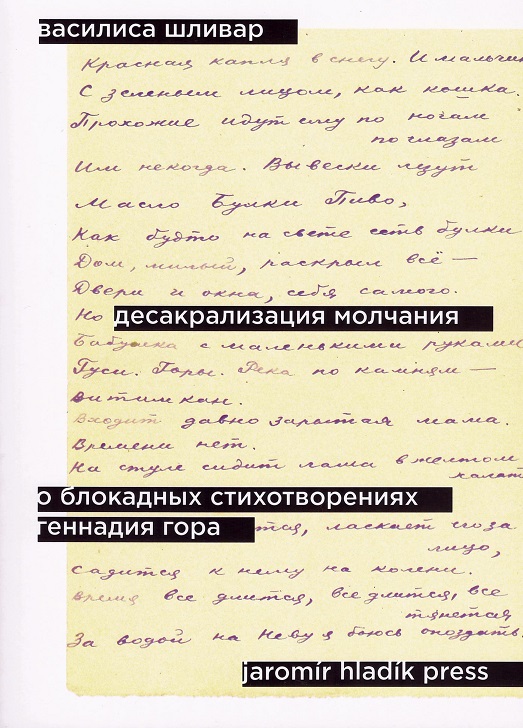 василиса шливар
Красная капля в снегу. И мальчик
С зеленым лицом, как кошка.
Прохожие идут ему по ногам
по глазам
Им некогда. Вывески лезут
Масло Булки Пиво,
Как будто на свете есть булки
Дом, милый, раскрыл всё —
Двери и окна, себя самого.
Но
десакрализация молчания
Бабушка с маленькими руками
Гуси. Горы. Река по камням —
Витимкан.
Входит давно зарытая мама.
Времени нет.
На стуле сидит лама в желтом
халат
о блокадных стихотворениях
геннадия гора
ется, ласкает глаза
лицо,
Садится к нему на колени.
Время все длится, все длится, все
тянется
За водой на Неву я боюсь опоздать.
jaromír hladík press